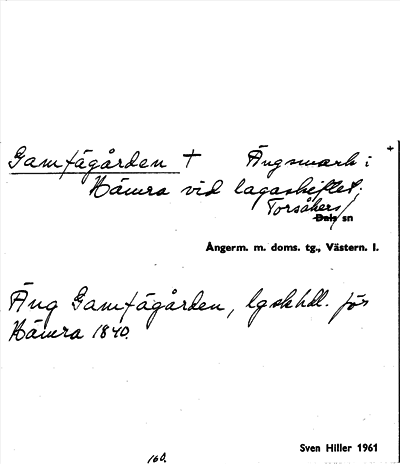 Gamfägården + Ängsmark i
Hämra vid lagaskiftet;
Torsåkers
Dals sn
Ångerm. m. doms. tg., Västern. l.
Äng Gamfägården, lgskhdl.för
Hämra 1840.
Sven Hiller 1961
160.